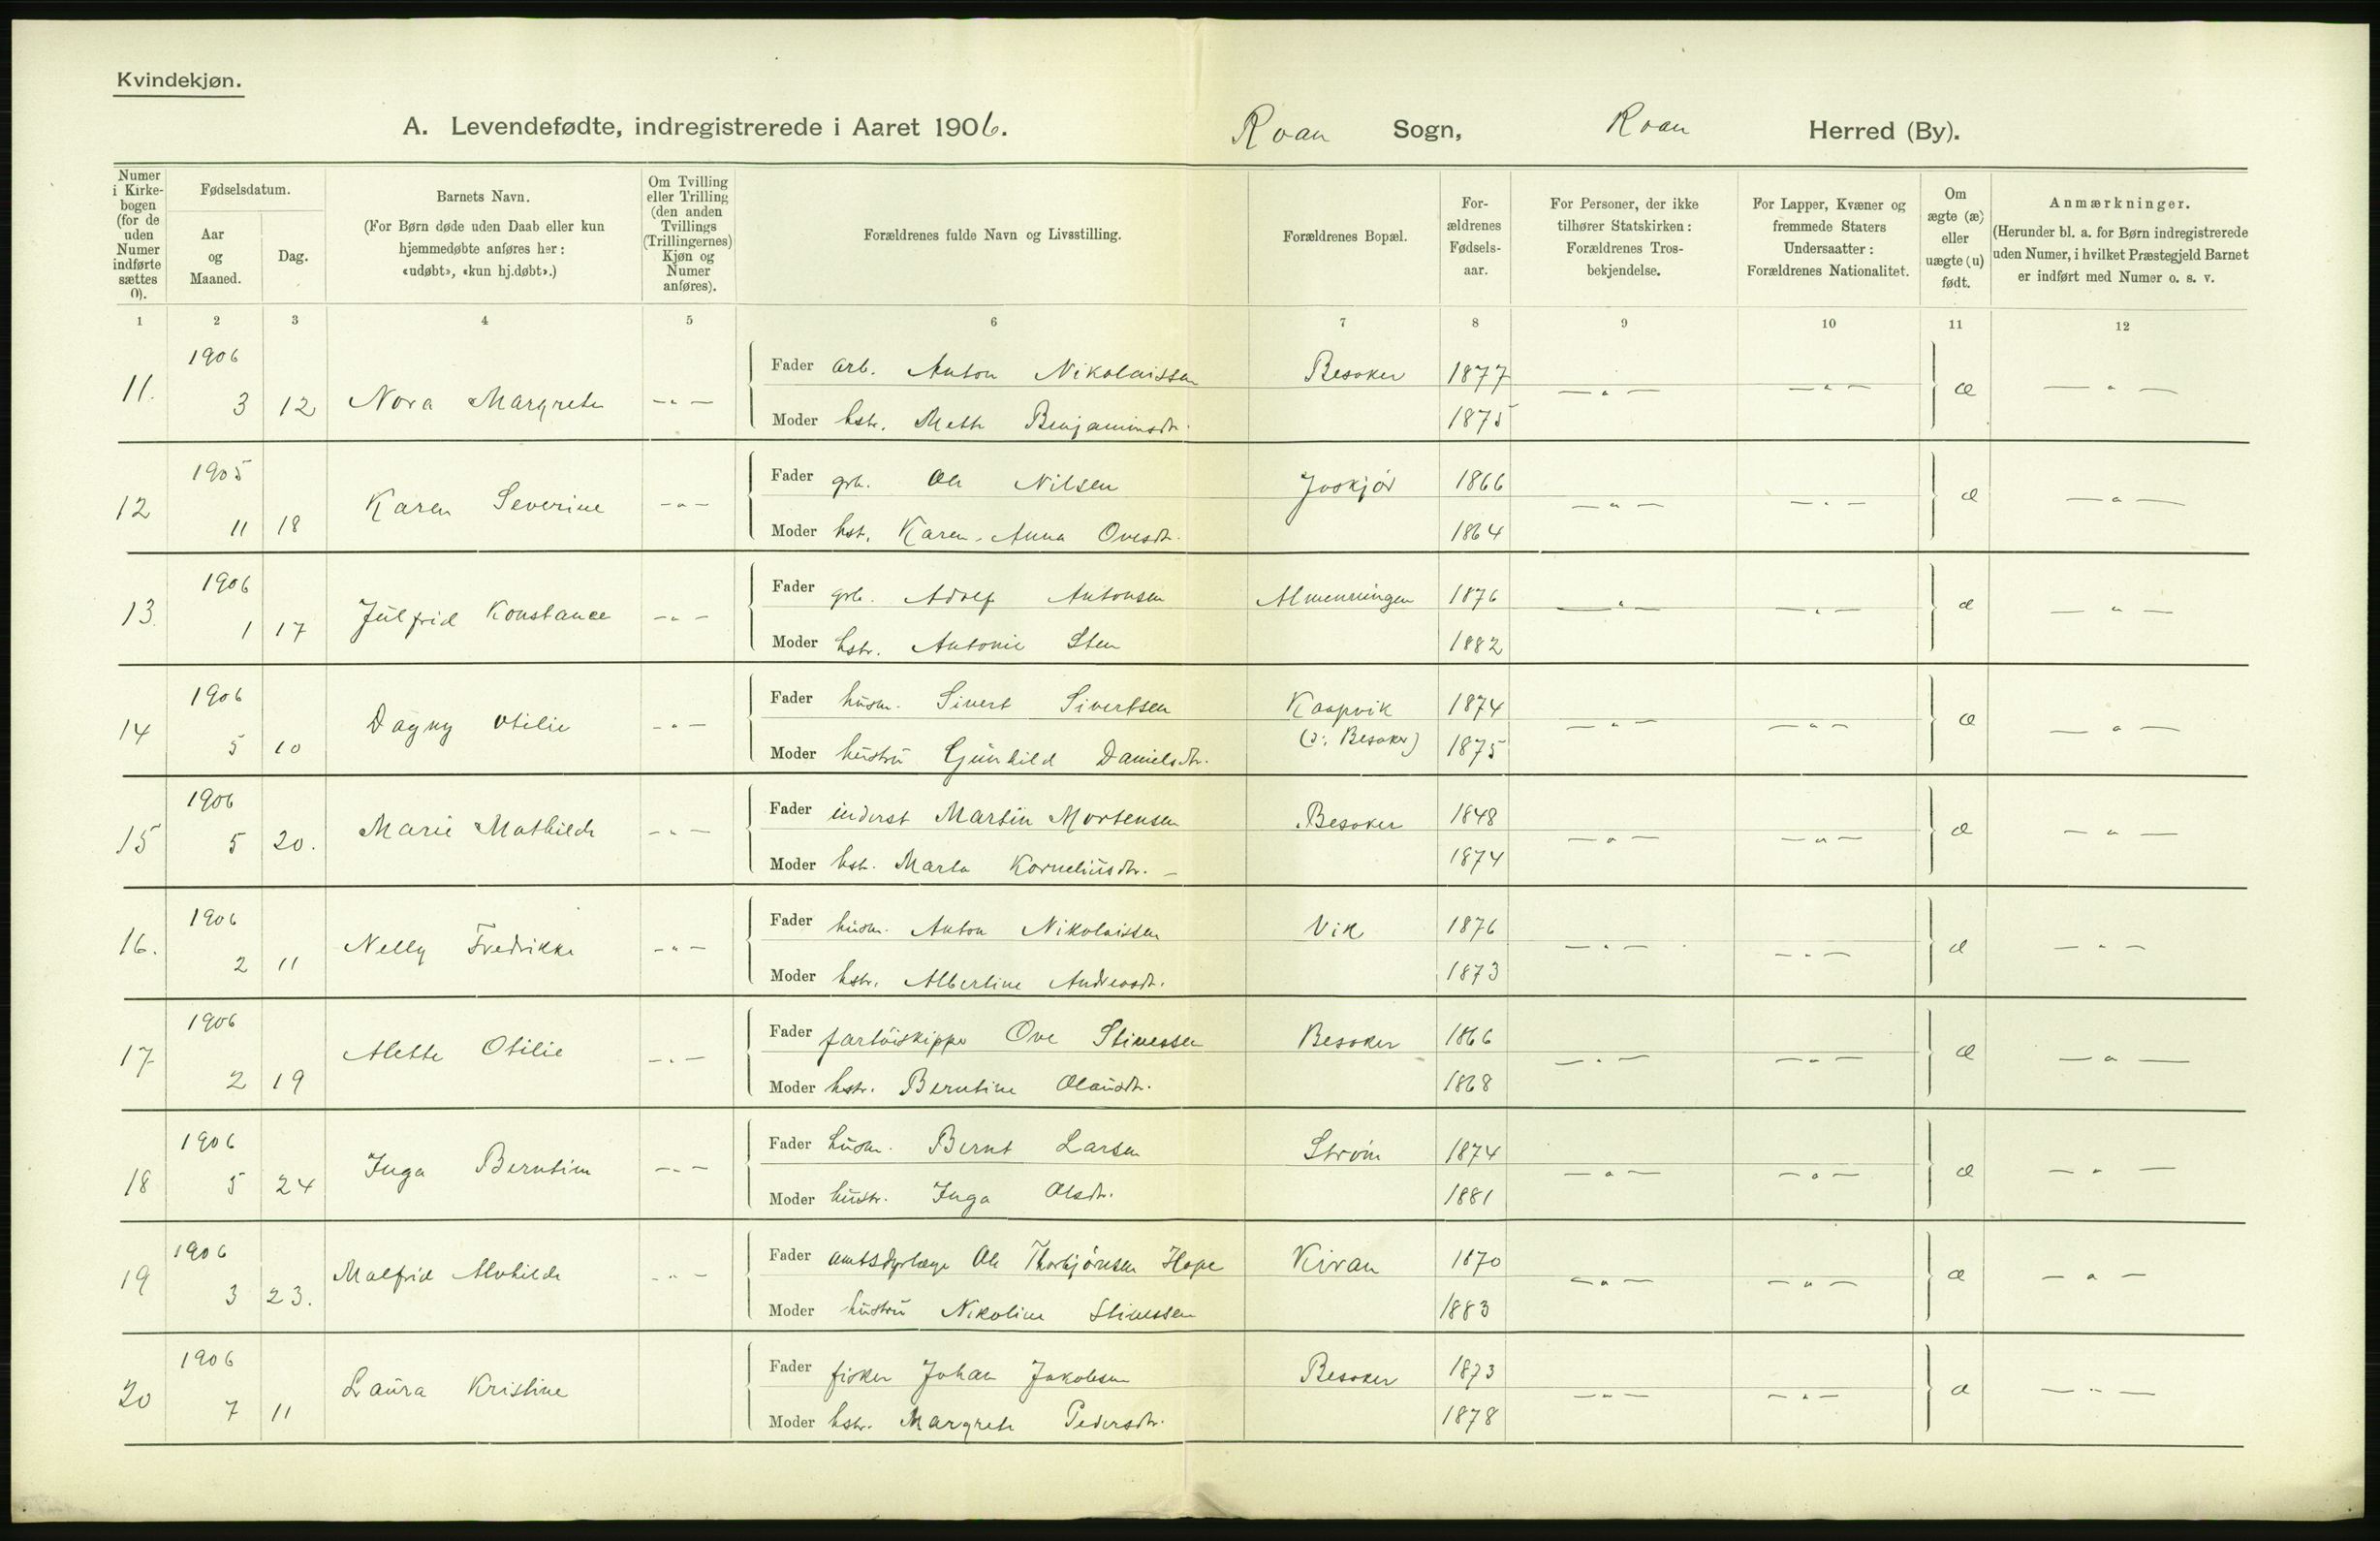 Kvindekjøn.
A. Levendefødte, indregistrerede i Aaret 1906. Roan Sogn, Roan Herred (By).
Numer i Kirke-bogen (for de uden Numer indførte sættes 0).
Fødselsdatum.
Aar og Maaned.
Dag.
Barnets Navn.
(For Børn døde uden Daab eller kun
hjemmedøbte anføres her:
«udøbt», «kun hj.døbt».)
Om Tvilling eller Trilling (den anden Tvillings (Trillingernes) Kjøn og Numer anføres).
Forældrenes fulde Navn og Livsstilling.
Forældrenes Bopæl.
For-ældrenes Fødsels-aar.
For Personer, der ikke
tilhører Statskirken:
Forældrenes Tros-
bekjendelse.
For Lapper, Kvæner og
fremmede Staters
Undersaatter:
Forældrenes Nationalitet.
Om ægte (æ) eller uægte (u) født.
Anmærkninger.
(Herunder bl. a. for Børn indregistrerede
uden Numer, i hvilket Præstegjeld Barnet
er indført med Numer o. s. v.
1 2 3 4 5 6 7 8 9 10 11 12
11. 1906 3 12 Nora Margrete -"- Fader arb. Anton Nikolaissen Besaker 1877 -"- -"- æ -"-
Moder hstr. Mette Benjaminsdtr. 1875
12 1905 11 18 Karen Severine -"- Fader grb. Ole Nilsen 1866 -"- -"- æ -"-
Moder hst. Karen Anna Ovesdtr. 1864
13. 1906 1 17 Julfrid Konstance -"- Fader grb. Adolf Antonsen Almenningen 1876 -"- -"- æ -"-
Moder hstr. Antonie Sten 1882
14 1906 5 10 Dagny Otilie -"- Fader husm. Sivert Sivertsen 1874 -"- -"- æ -"-
Moder hustru Gunhild Danielsdtr. (ɔ: Besaker) 1875
15 1906 5 20. Marie Mathilde -"- Fader inderst Martin Mortensen Besaker 1848 -"- -"- æ -"-
Moder hst. Marta Korneliusdtr. - 1874
16. 1906 2 11 Nelly Fredrikke -"- Fader husm. Anton Nikolaissen Vik 1876 -"- -"- æ -"-
Moder hstr. Albertine Andreasdtr. 1873
17 1906 2 19 Alette Otilie -"- Fader fartøiskipper Ove Stinessen Besaker 1866 -"- -"- æ -"-
Moder hstr. Berntine Olausdtr. 1868
18 1906 5 24 Inga Berntine -"- Fader husm. Bernt Larsen Strøm 1874 -"- -"- æ -"-
Moder hustr. Inga Olsdtr. 1881
19 1906 3 23. Malfrid Alvhilde -"- Fader amtsdyrlæge Ole Thorbjørnsen Hope Kiran 1870 -"- -"- æ -"-
Moder hustru Nikoline Stinessen 1883
20 1906 7 11 Laura Kristine Fader fisker Johan Jakobsen Besaker 1873 -"- -"- æ -"-
Moder hstr. Margrete Pedersdtr. 1878